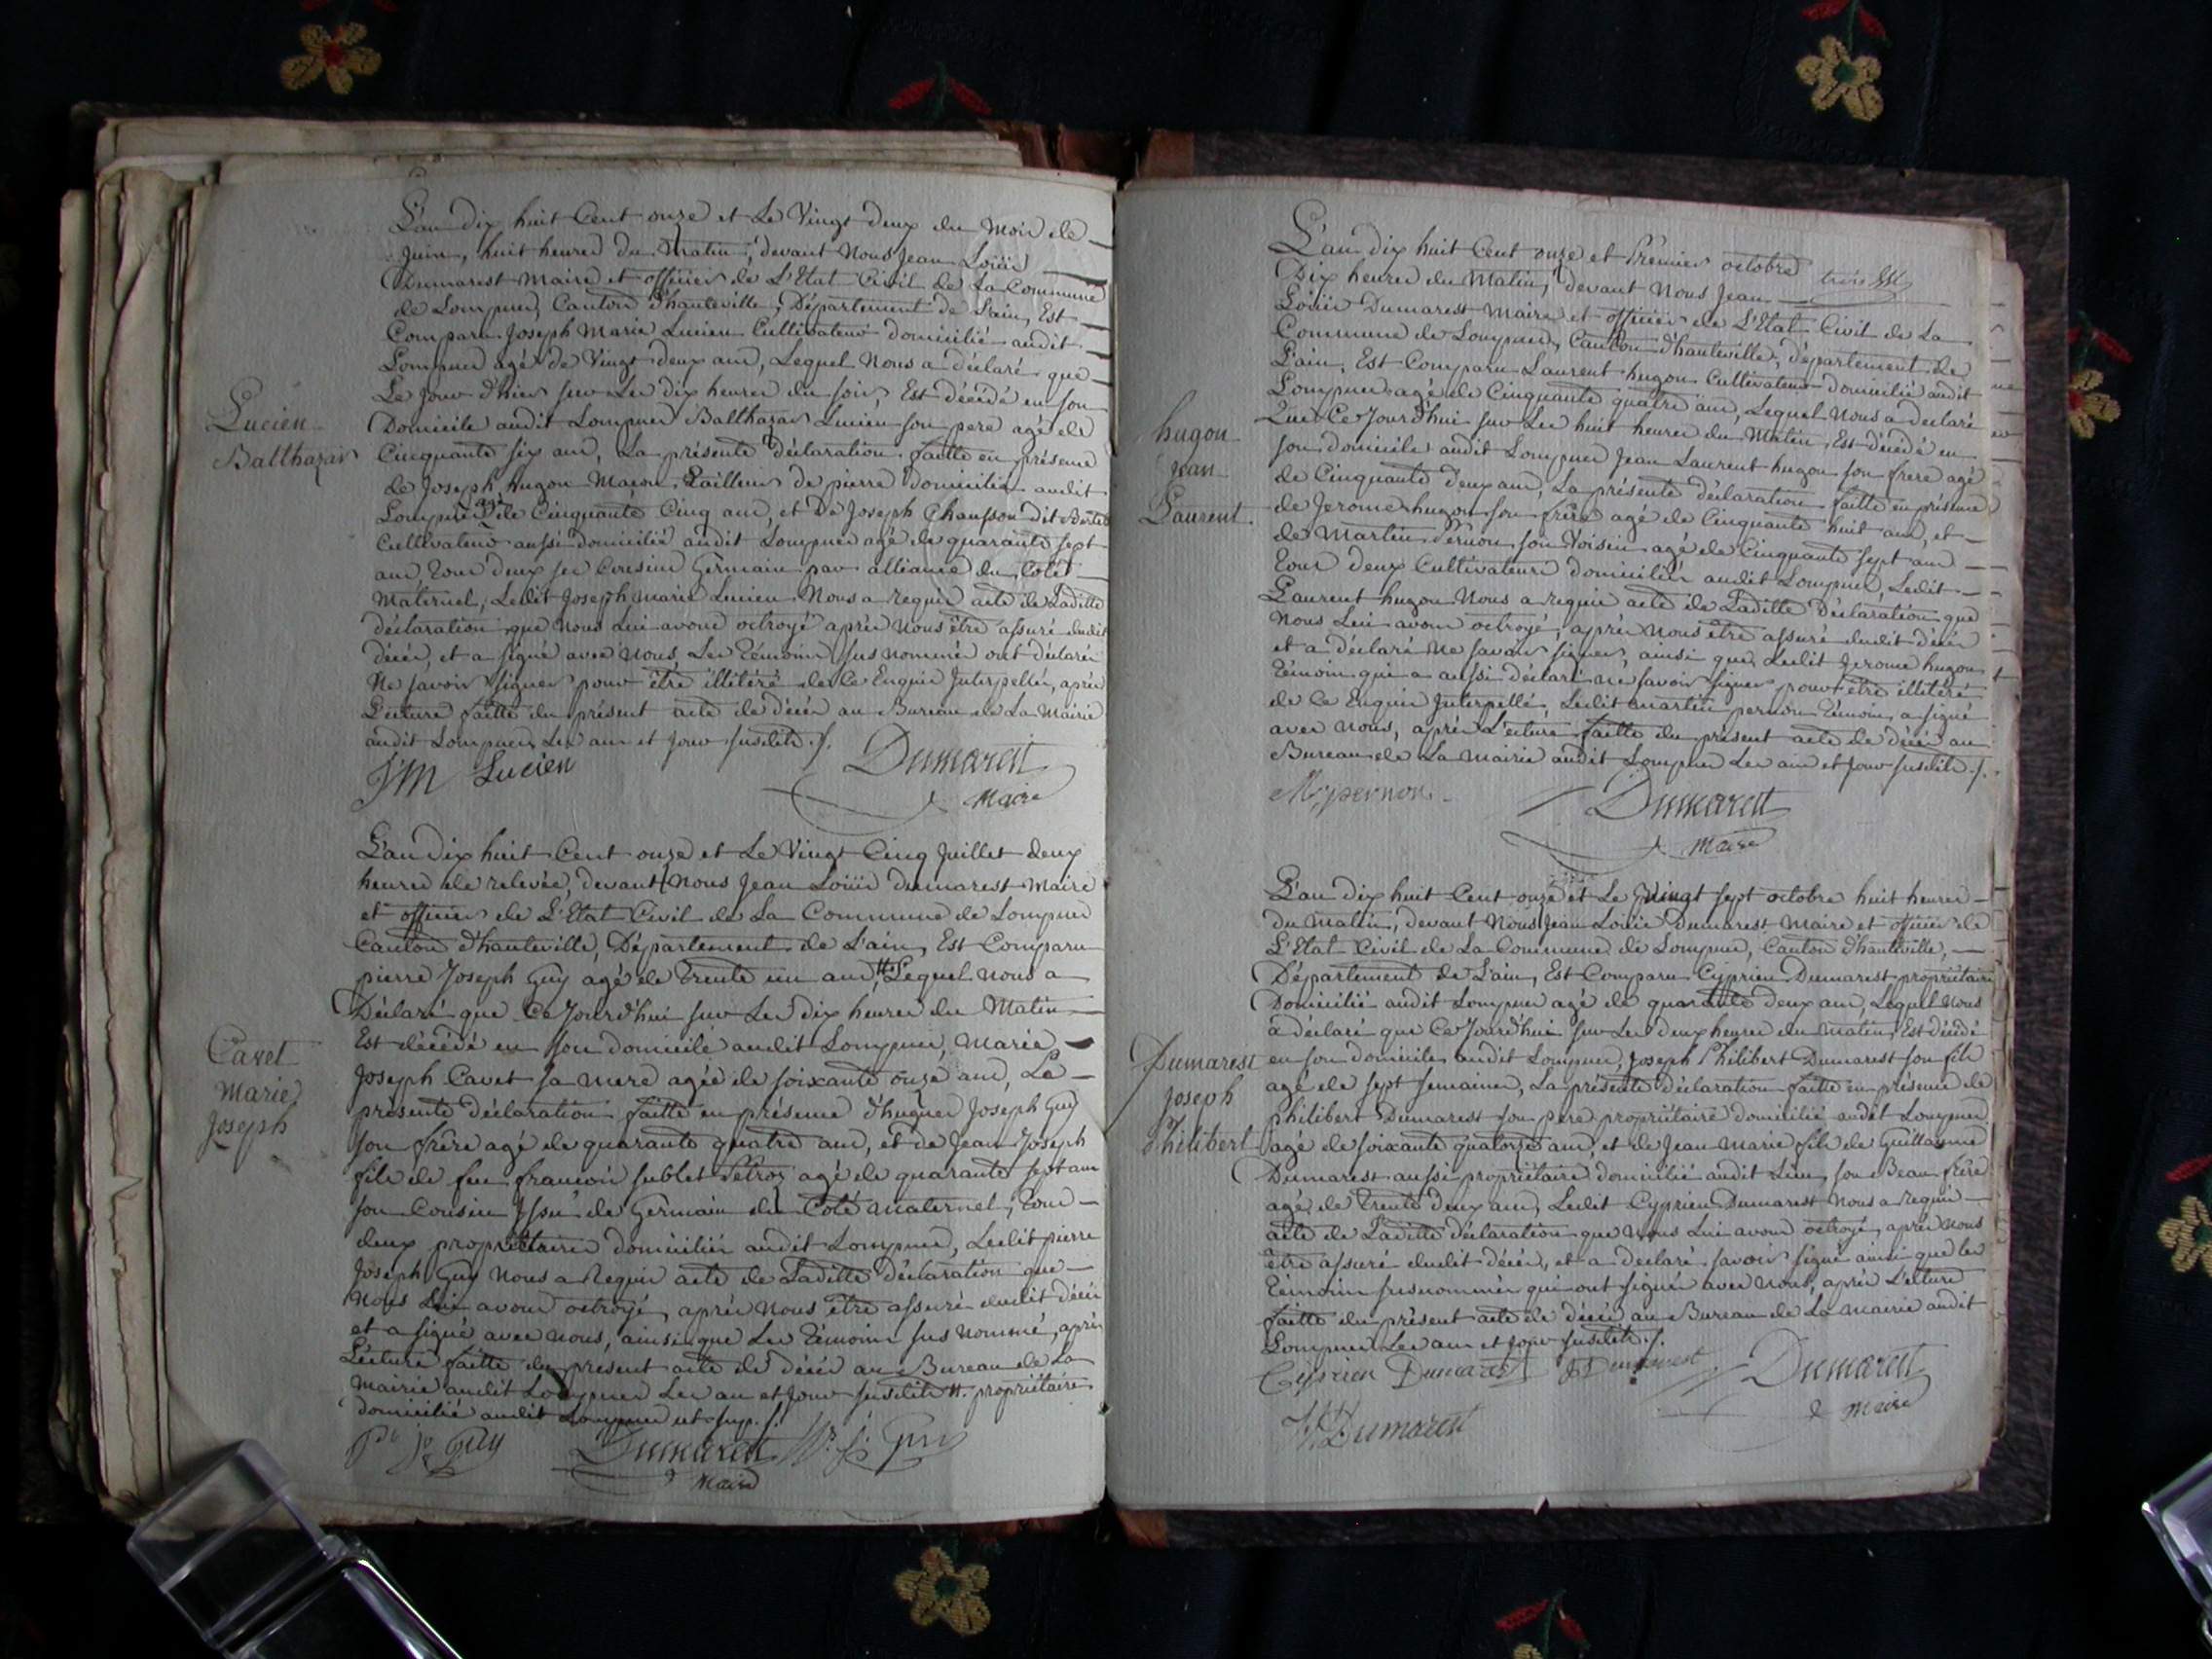 L'an dix huit Cent onze et Le Vingt deux du Mois de
Juin, huit heures du Matin, devant Nous Jean Loüis
Dumarest Maire et officier de L'Etat Civil de La Commune
de Lompnes, Canton d'hauteville, Département de L'ain, Est
Comparu Joseph Marie Lucien Cultivateur domicilié audit
Lompnes agé de Vingt deux ans, Lequel Nous a déclaré que
Le jour d'hier sur Les dix heures du soir, Est décédé en son
Lucien
Balthazar
Domicile audit Lompnes Balthazar Lucien son pere agé de
Cinquante six ans, La présente déclaration faitte en présence
de Joseph hugon Macon, Tailleur de pierre domicilié audit
Lompnes agé de Cinquante Cinq ans, et De Joseph Chanson dit
Cultivateur aussi domicilié audit Lompnes agé de quarante sept
ans, Tous deux ses Cousins Germain par alliance du Coté
Maternel, Ledit Joseph Marie Lucien Nous a requis acte de Laditte
déclaration que nous Lui avons octroyé après Nous être assuré dudit
décès, et a signé avec Nous, Les Témoins sus nommés ont déclarés
Ne savoir signer pour être illitéré de Ce Enquis Interpellés, après
Lecture faitte du présent acte de décès au Bureau de La Mairie
audit Lompnes Les an et jour susdits ./.
J M Lucien Dumarest
Maire
L'an dix huit Cent onze et Le Vingt Cinq Juillet deux
heures de relevée, devant Nous Jean Loüis dumarest Maire
et officier de L'Etat Civil de La Commune de Lompnes
Canton d'hauteville, Département de L'ain, Est Comparu
pierre Joseph Guy agé de Trente un ans, Lequel Nous a
Déclaré que Ce Jourd'hui sur Les dix heures du Matin
Cavet
Marie
Joseph
Est décédé en son domicile audit Lompnes, Marie
Joseph Cavet sa mere agée de soixante onze ans, La
présente déclaration faitte en présence d'hugues Joseph Guy
son frère agé de quarante quatre ans, et de Jean Joseph
fils de feu francois sublet agé de quarante sept ans
son Cousin Issu de Germain du Coté Maternel, Tous
deux propriétaires domiciliés audit Lompnes, Ledit pierre
Joseph Guy Nous a Requis acte de Laditte Déclaration que
Nous Lui avons octroyé, après Nous être assuré dudit décès
et a signé avec Nous, ainsi que Les Témoins sus Nommé, après
Lecture faitte du présent acte de décès au Bureau de La
Mairie audit Lompnes Les an et Jour susdits #. propriétaire
domicilié audit Lompnes ut sup. /.
Pe Jh Guy Dumarest
Maire
L'an dix huit Cent onze et Premier octobre
Dix heures du Matin, devant Nous Jean
Loüis Dumarest Maire et officier de L'Etat Civil de La
Commune de Lompnes, Canton d'hauteville, département de
L'ain, Est Comparu Laurent hugon Cultivateur domicilié audit
Lompnes agé de Cinquante quatre ans, Lequel Nous a déclaré
hugon
jean
Laurent
Que Ce Jourd'hui sur Les huit heures du Matin, Est décédé en
son domicile audit Lompnes Jean Laurent hugon son frere agé
de Cinquante deux ans, La présente déclaration faitte en présence
de Jerome hugon son frère agé de Cinquante huit ans, et
de Martin Pernon son Voisin agé de Cinquante sept ans
Tous deux Cultivateurs domiciliés audit Lompnes, Ledit
Laurent hugon Nous a requis acte de Laditte Déclaration que
Nous Lui avons octroyé, après Nous être assuré dudit décès
et a déclaré Ne savoir signer, ainsi que Ledit Jerome hugon
Témoin qui a aussi déclaré ne savoir signer pour être illitéré
de Ce Enquis Interpellé, Ledit martin pernon Témoin, a signé
avec Nous, après Lecture faitte du présent acte de décès au
Bureau de La Mairie audit Lompnes Les an et Jour susdits ./.
M pernon Dumarest
Maire
L'an dix huit Cent onze et Le Vingt sept octobre huit heures
du Matin, devant Nous Jean Loüis Dumarest Maire et officier de
L'Etat Civil de La Commune de Lompnes, Canton d'hauteville,
Département de L'ain, Est Comparu Cyprien Dumarest propriétaire
Domicilié audit Lompnes agé de quarante deux ans, Lequel Nous
a déclaré que Ce Jourd'hui sur Les deux heures du Matin, Est décédé
Dumarest
joseph
Philibert
en son domicile audit Lompnes, Joseph Philibert Dumarest son fils
agé de sept semaines, La présente déclaration faitte en présence de
Philibert Dumarest son pere propriétaire domicilié audit Lompnes
agé de soixante quatorze ans, et de Jean Marie fils de Guillaume
Dumarest aussi propriétaire domicilié audit Lieu son Beau frère
agé de Trente deux ans, Ledit Cyprien Dumarest Nous a requis
acte de Laditte déclaration que Nous Lui avons octroyé, après Nous
être assuré dudit décès, et a déclaré savoir signé ainsi que les
Témoins susnommés qui ont signés avec Nous, après Lecture
faitte du présent acte de décès au Bureau de La Mairie audit
Lompnes Les an et Jour susdits ./.
Cyprien Dumarest Dumarest Dumarest
Maire
Dumarest